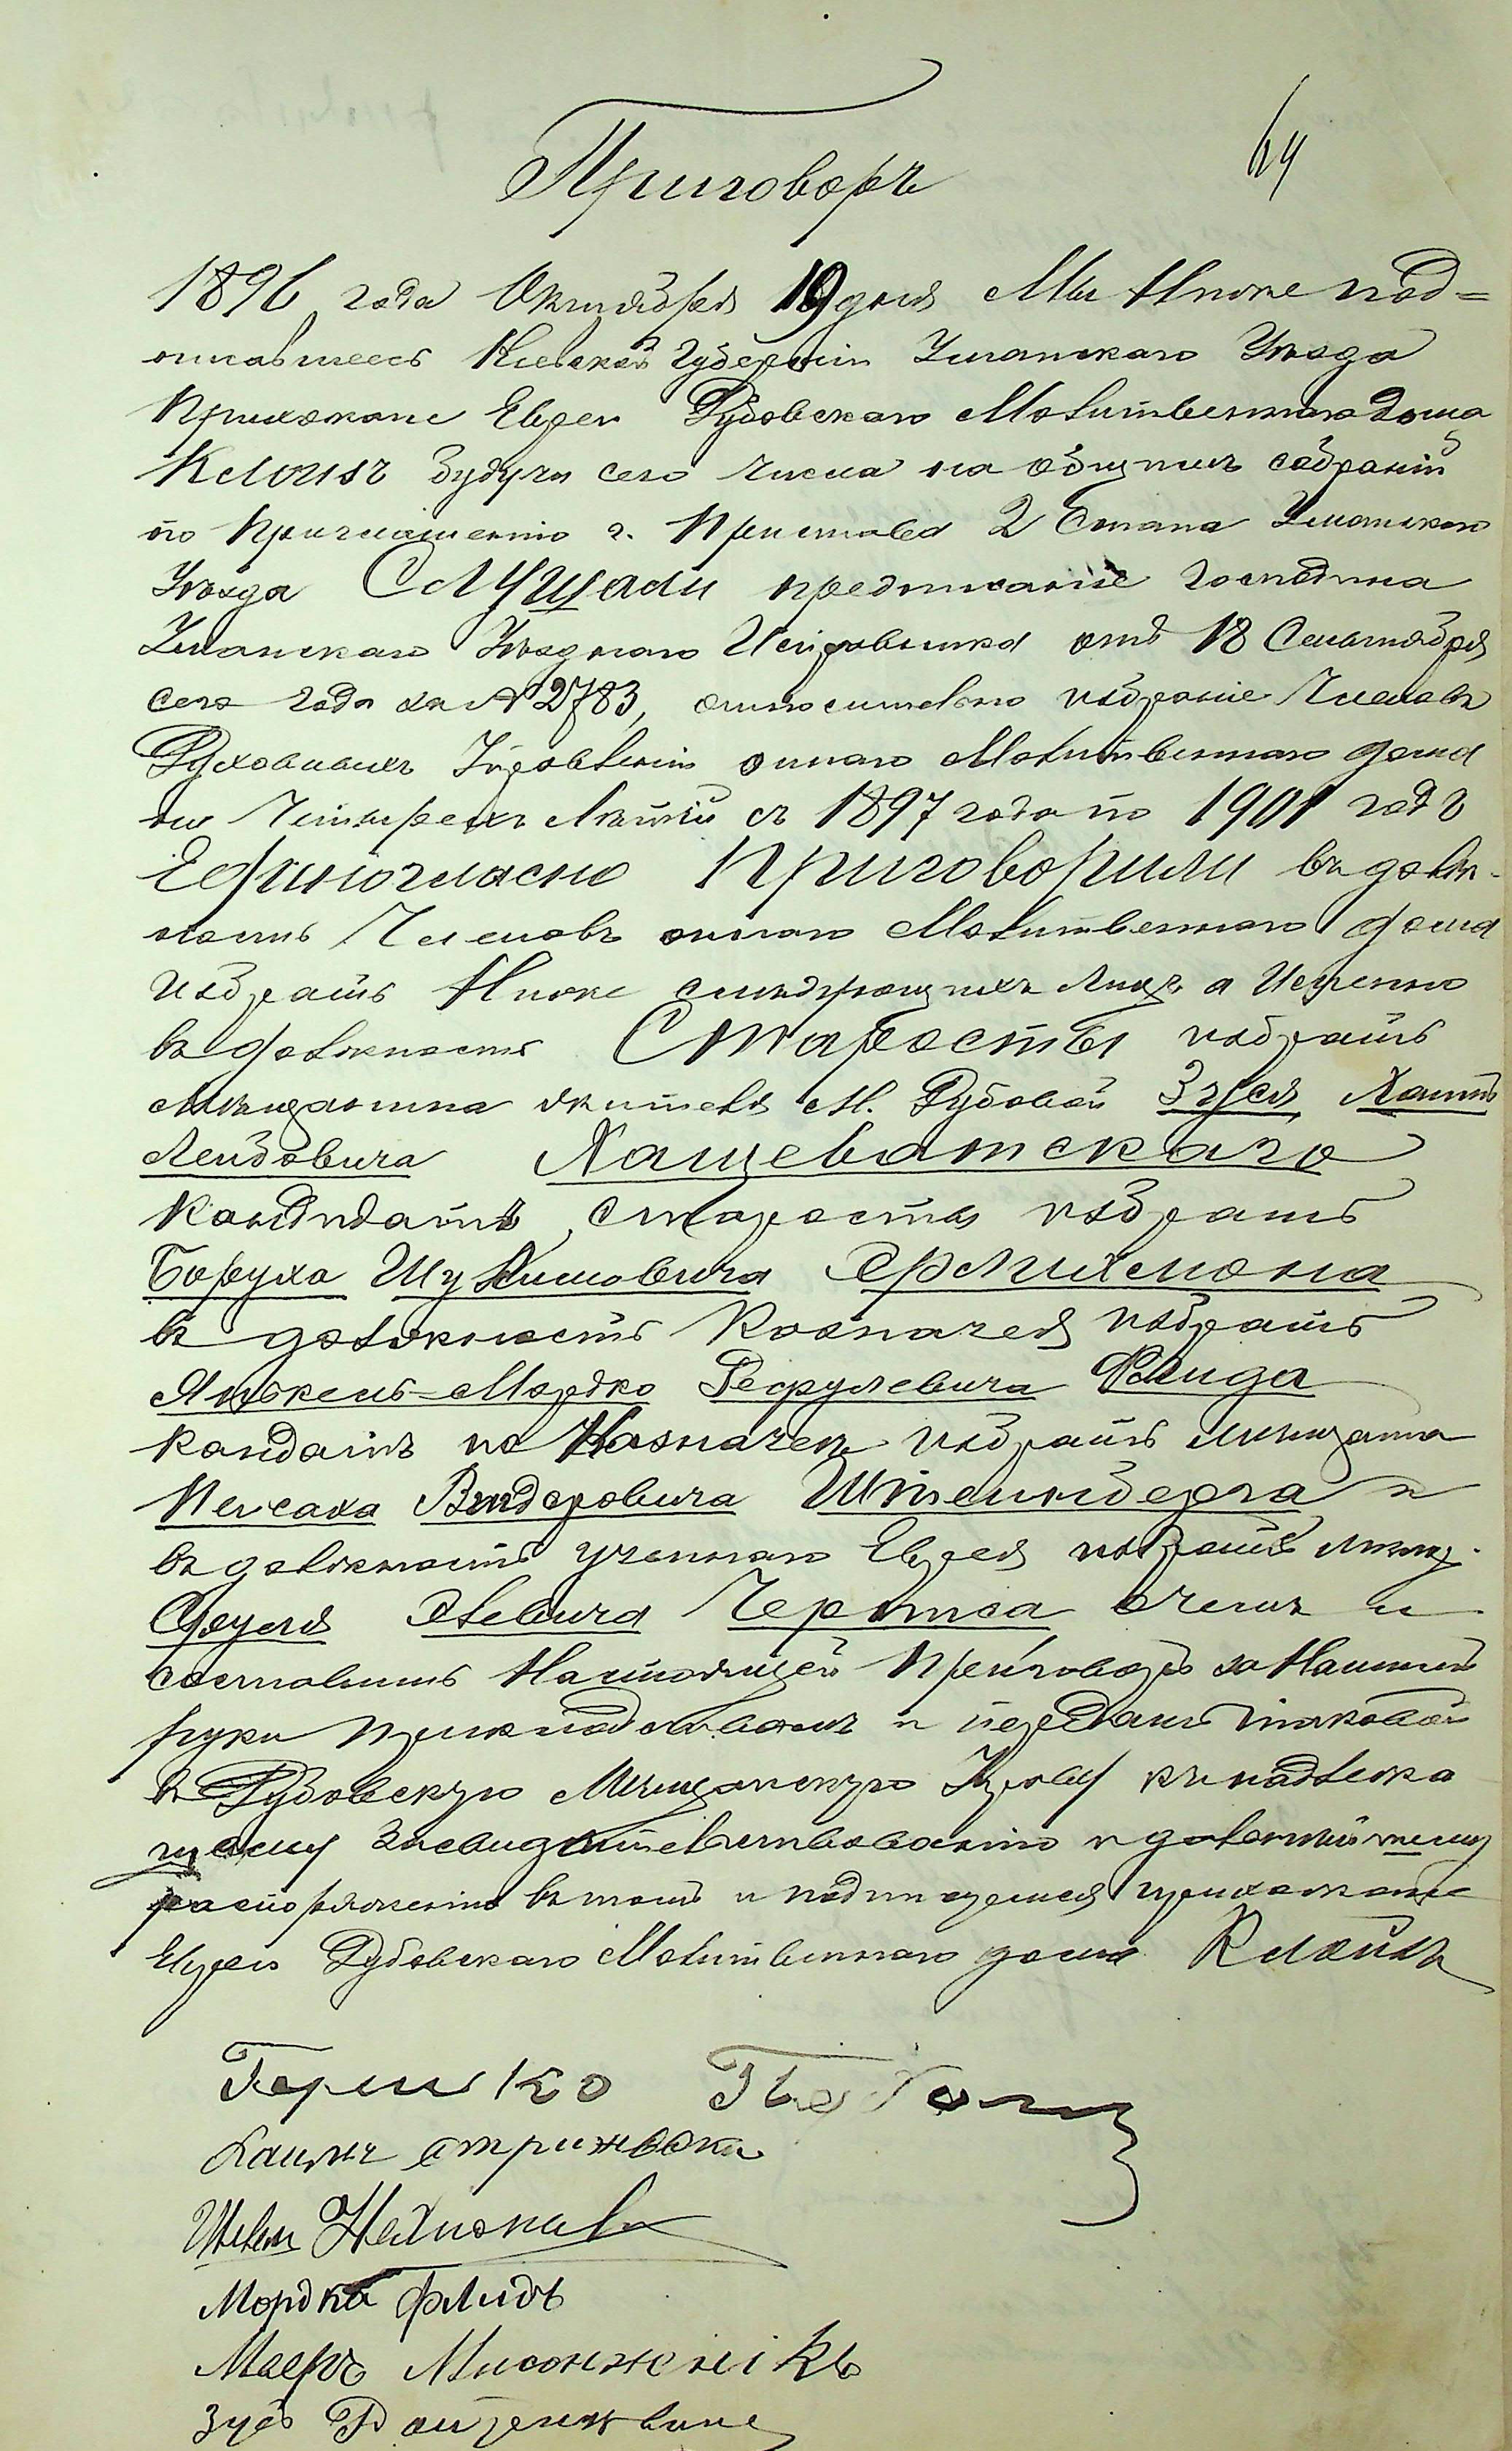 Приговоръ
64
1896 года Октября 19 дня Мы Ниже под=
писавшеесь Киевской Губерніи Уманскаго Уезда
Прихожане Евреи Дубовскаго Молитвенного дома
Клоизъ будучи сего числа на общимъ собраніи
по Приглашенію г. Пристава 2 Стана Уманскаго
Уезда Слушали предписаніе Господина
Уманскаго Уезднаго Исправника отъ 18 Сентября
сего года за № 2783, относительно избраніе Членовъ
Духовныхъ Правленіи оного Молитвенного дома
на Четырехъ Летіи съ 1897 года по 1901 годъ
Единогласно Приговорили въ долж-
ность Членовъ оного Молитвенного дома
избрать Ниже следующихъ Лицъ а Именно
въ должность Старосты избрать
мещанина жителя М. Дубовой Зуся Хаимъ
Лейбовича Хащеватскаго
Кандидатъ Старосты избрать
Боруха Шулимовича Ерлихмона
въ должность Козначея избрать
Янкель-Мордко Рефулевича Флида
кандатъ по Казначея избрать мещанина
Пейсаха Видоровича Штейнберга и
въ должность ученого Еврея избрать мещ.
Сруля Левича Черниса очемъ и
составить Настоящей Приговоръ за Нашими
руки прикладствомъ и передать таковой
в Дубовскую Мещанскую Управу къ надлежа
щему засвидетельствованію и дальнейшему
распоряженію въ томъ и подписуемся прихожане
Евреи Дубовскаго Молитвенного дома Клойзъ
Гершко
Хаимъ стрижевски
Мордко Флидъ
Маеръ Мисонжнікъ
Зусь